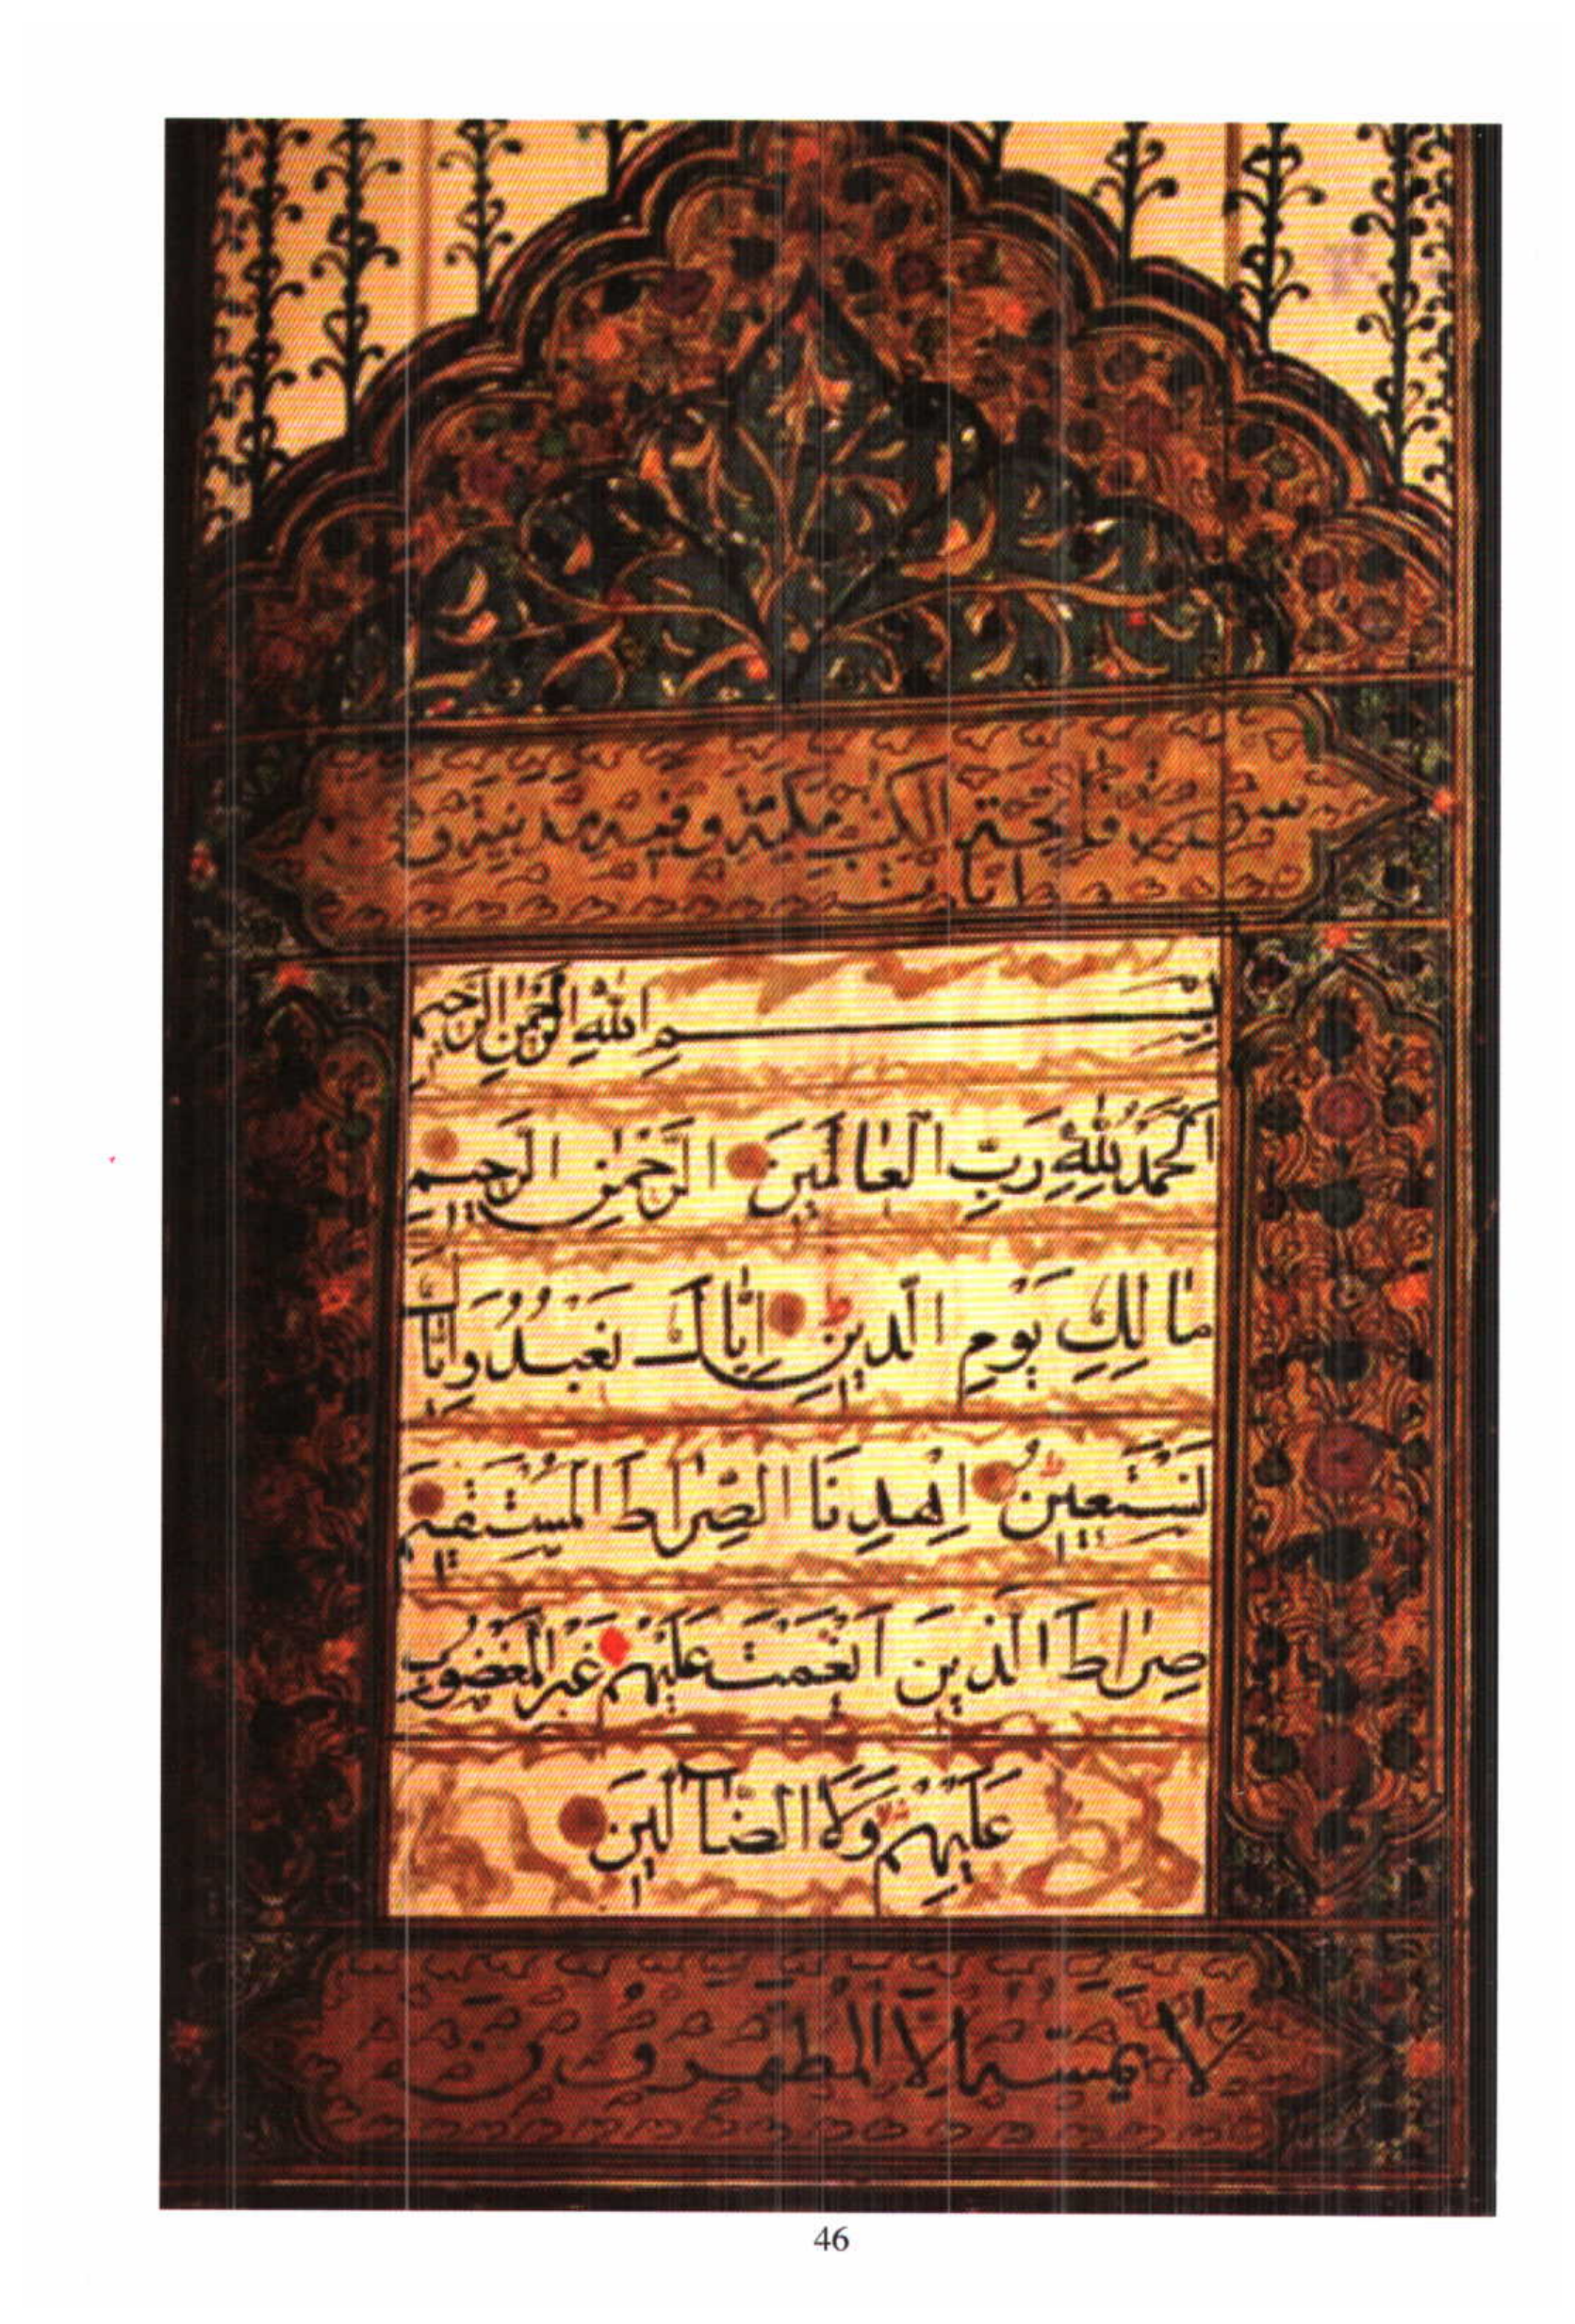 سورة فاتحة الكتب مكية وقيل مدنية وهي
ايات
بِسْمِ اللهِ الرَّحْمٰنِ الرَّحِيمِ
اَلْحَمْدُ لِلّٰهِ رَبِّ الْعَالَمِينَ الرَّحْمٰنِ الرَّحِيمِ
مَالِكِ يَوْمِ الدِّينِ اِيَّاكَ نَعْبُدُ وَاِيَّاكَ
نَسْتَعِينُ اِهْدِنَا الصِّرَاطَ الْمُسْتَقِيمَ
صِرَاطَ الَّذِينَ اَنْعَمْتَ عَلَيْهِمْ غَيْرِ الْمَغْضُوبِ
عَلَيْهِمْ وَلَا الضَّآلِّينَ
لا يمسه الا المطهرون
46